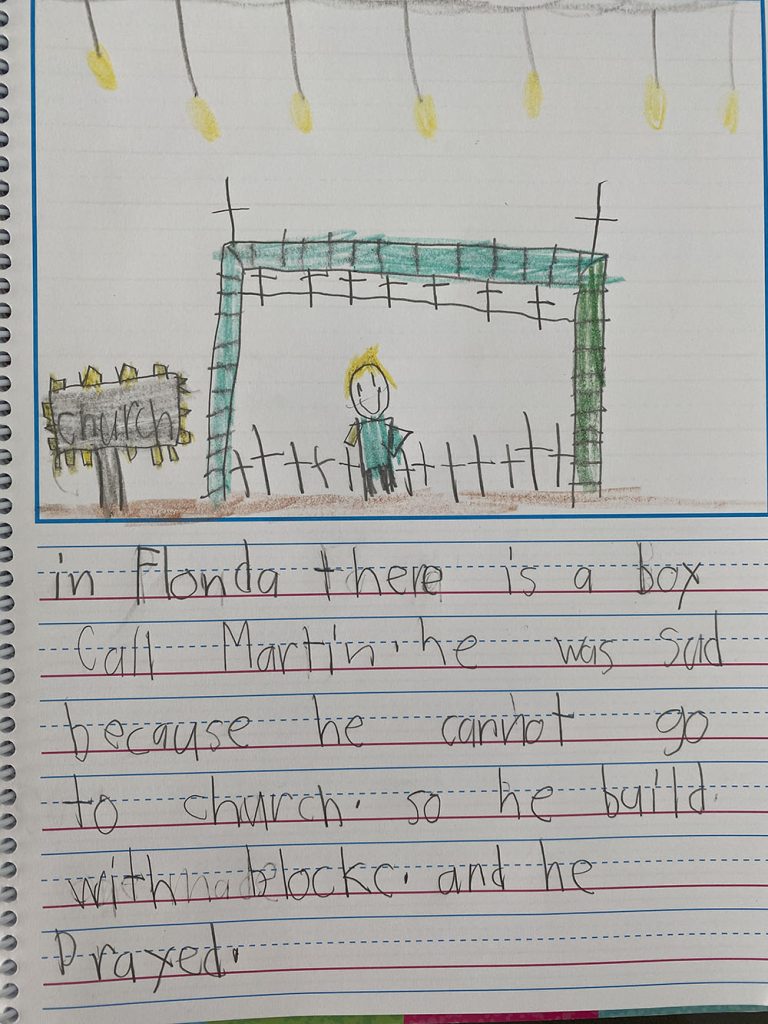 church
in Florida there is a box
Call Martin. he was sad
because he cannot go
to church. so he build.
with blockc. and he
Prayed.